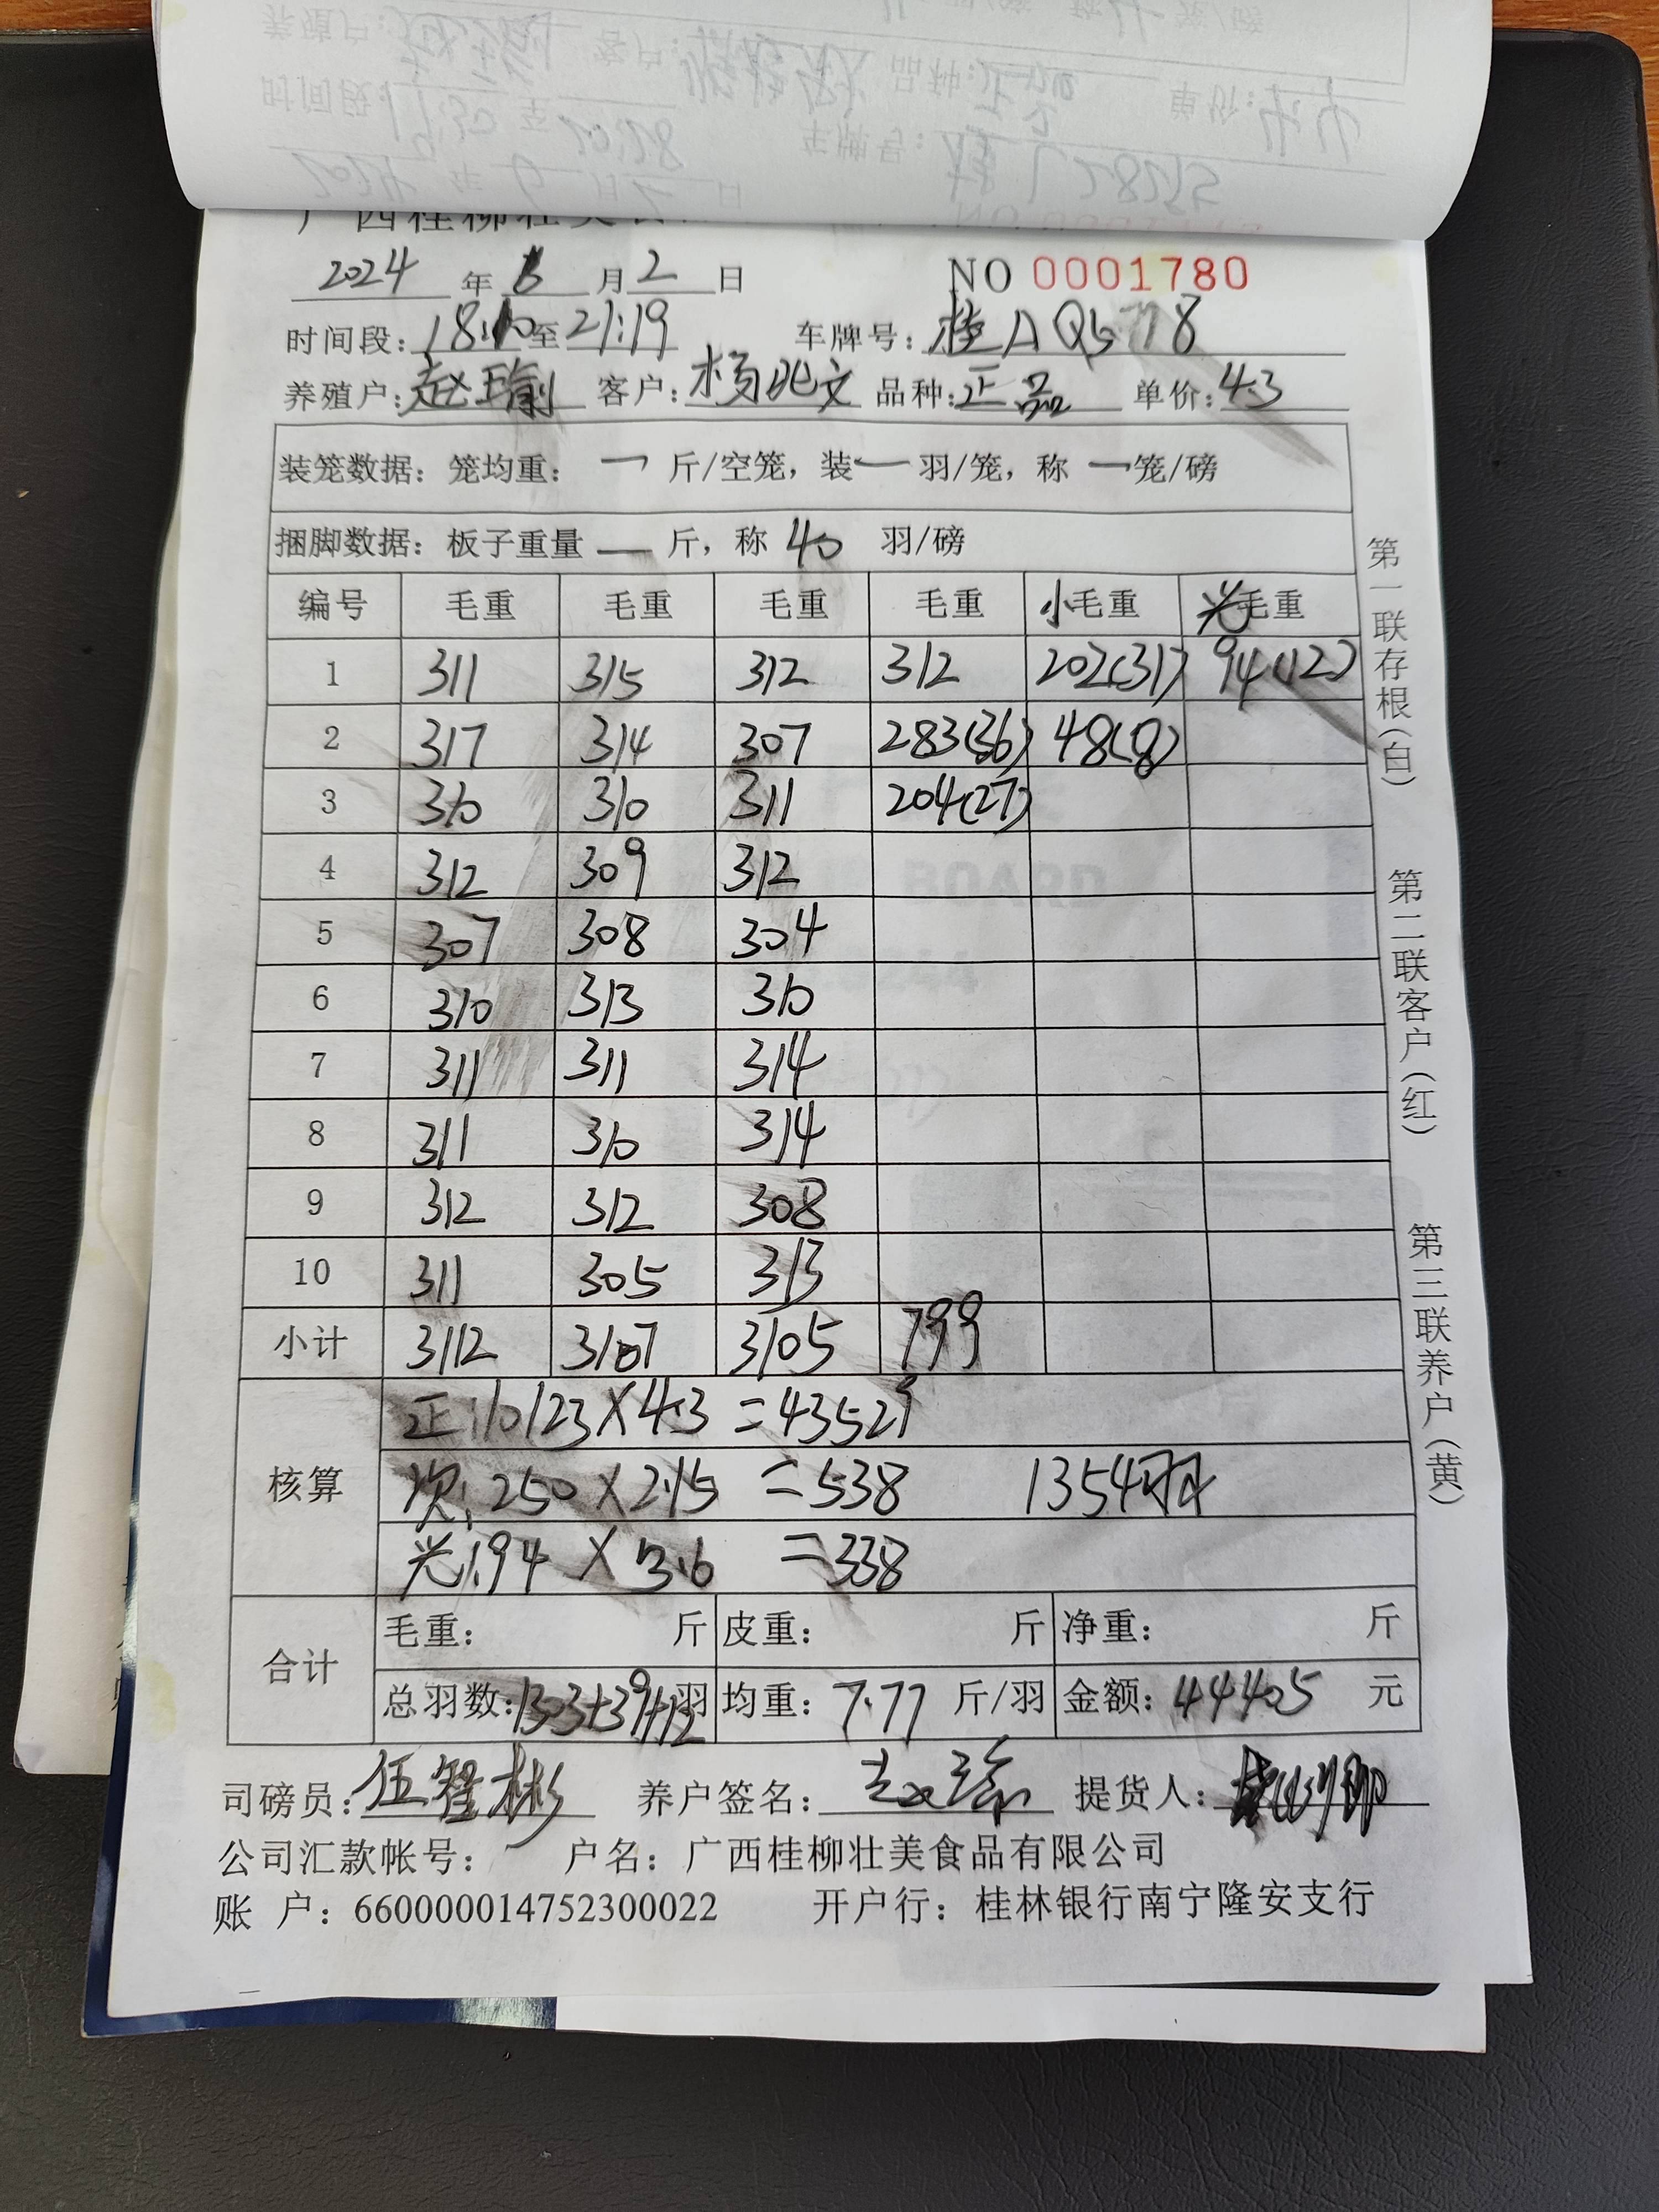 2024 年 6 月 2 日 NO 0001780
时间段: 18:10 至 21:19 车牌号: 桂A Q5778
养殖户: 赵瑜 客户: 杨兆文 品种: 正品 单价: 4.3
装笼数据: 笼均重: 一 斤/空笼, 装 一 羽/笼, 称 一 笼/磅
捆脚数据: 板子重量 一 斤, 称 40 羽/磅
编号 毛重 毛重 毛重 毛重 小毛重 光毛重
1 311 315 312 312 202(31) 94(12)
2 317 314 307 283(36) 48(8)
3 310 310 311 204(27)
4 312 309 312
5 307 308 304
6 310 313 310
7 311 311 314
8 311 310 314
9 312 312 308
10 311 305 313
小计 3112 3107 3105 799
核算
正: 10123×4.3 =43529
次: 250×2.15 =538 1354羽
光: 94×3.6 =338
合计
毛重: 斤 皮重: 斤 净重: 斤
总羽数: 1303+39+12 羽 均重: 7.77 斤/羽 金额: 44405 元
司磅员: 伍智彬 养户签名: 赵瑜 提货人:
公司汇款帐号: 户名: 广西桂柳壮美食品有限公司
账 户: 660000014752300022 开户行: 桂林银行南宁隆安支行
第一联存根(白)
第二联客户(红)
第三联养户(黄)